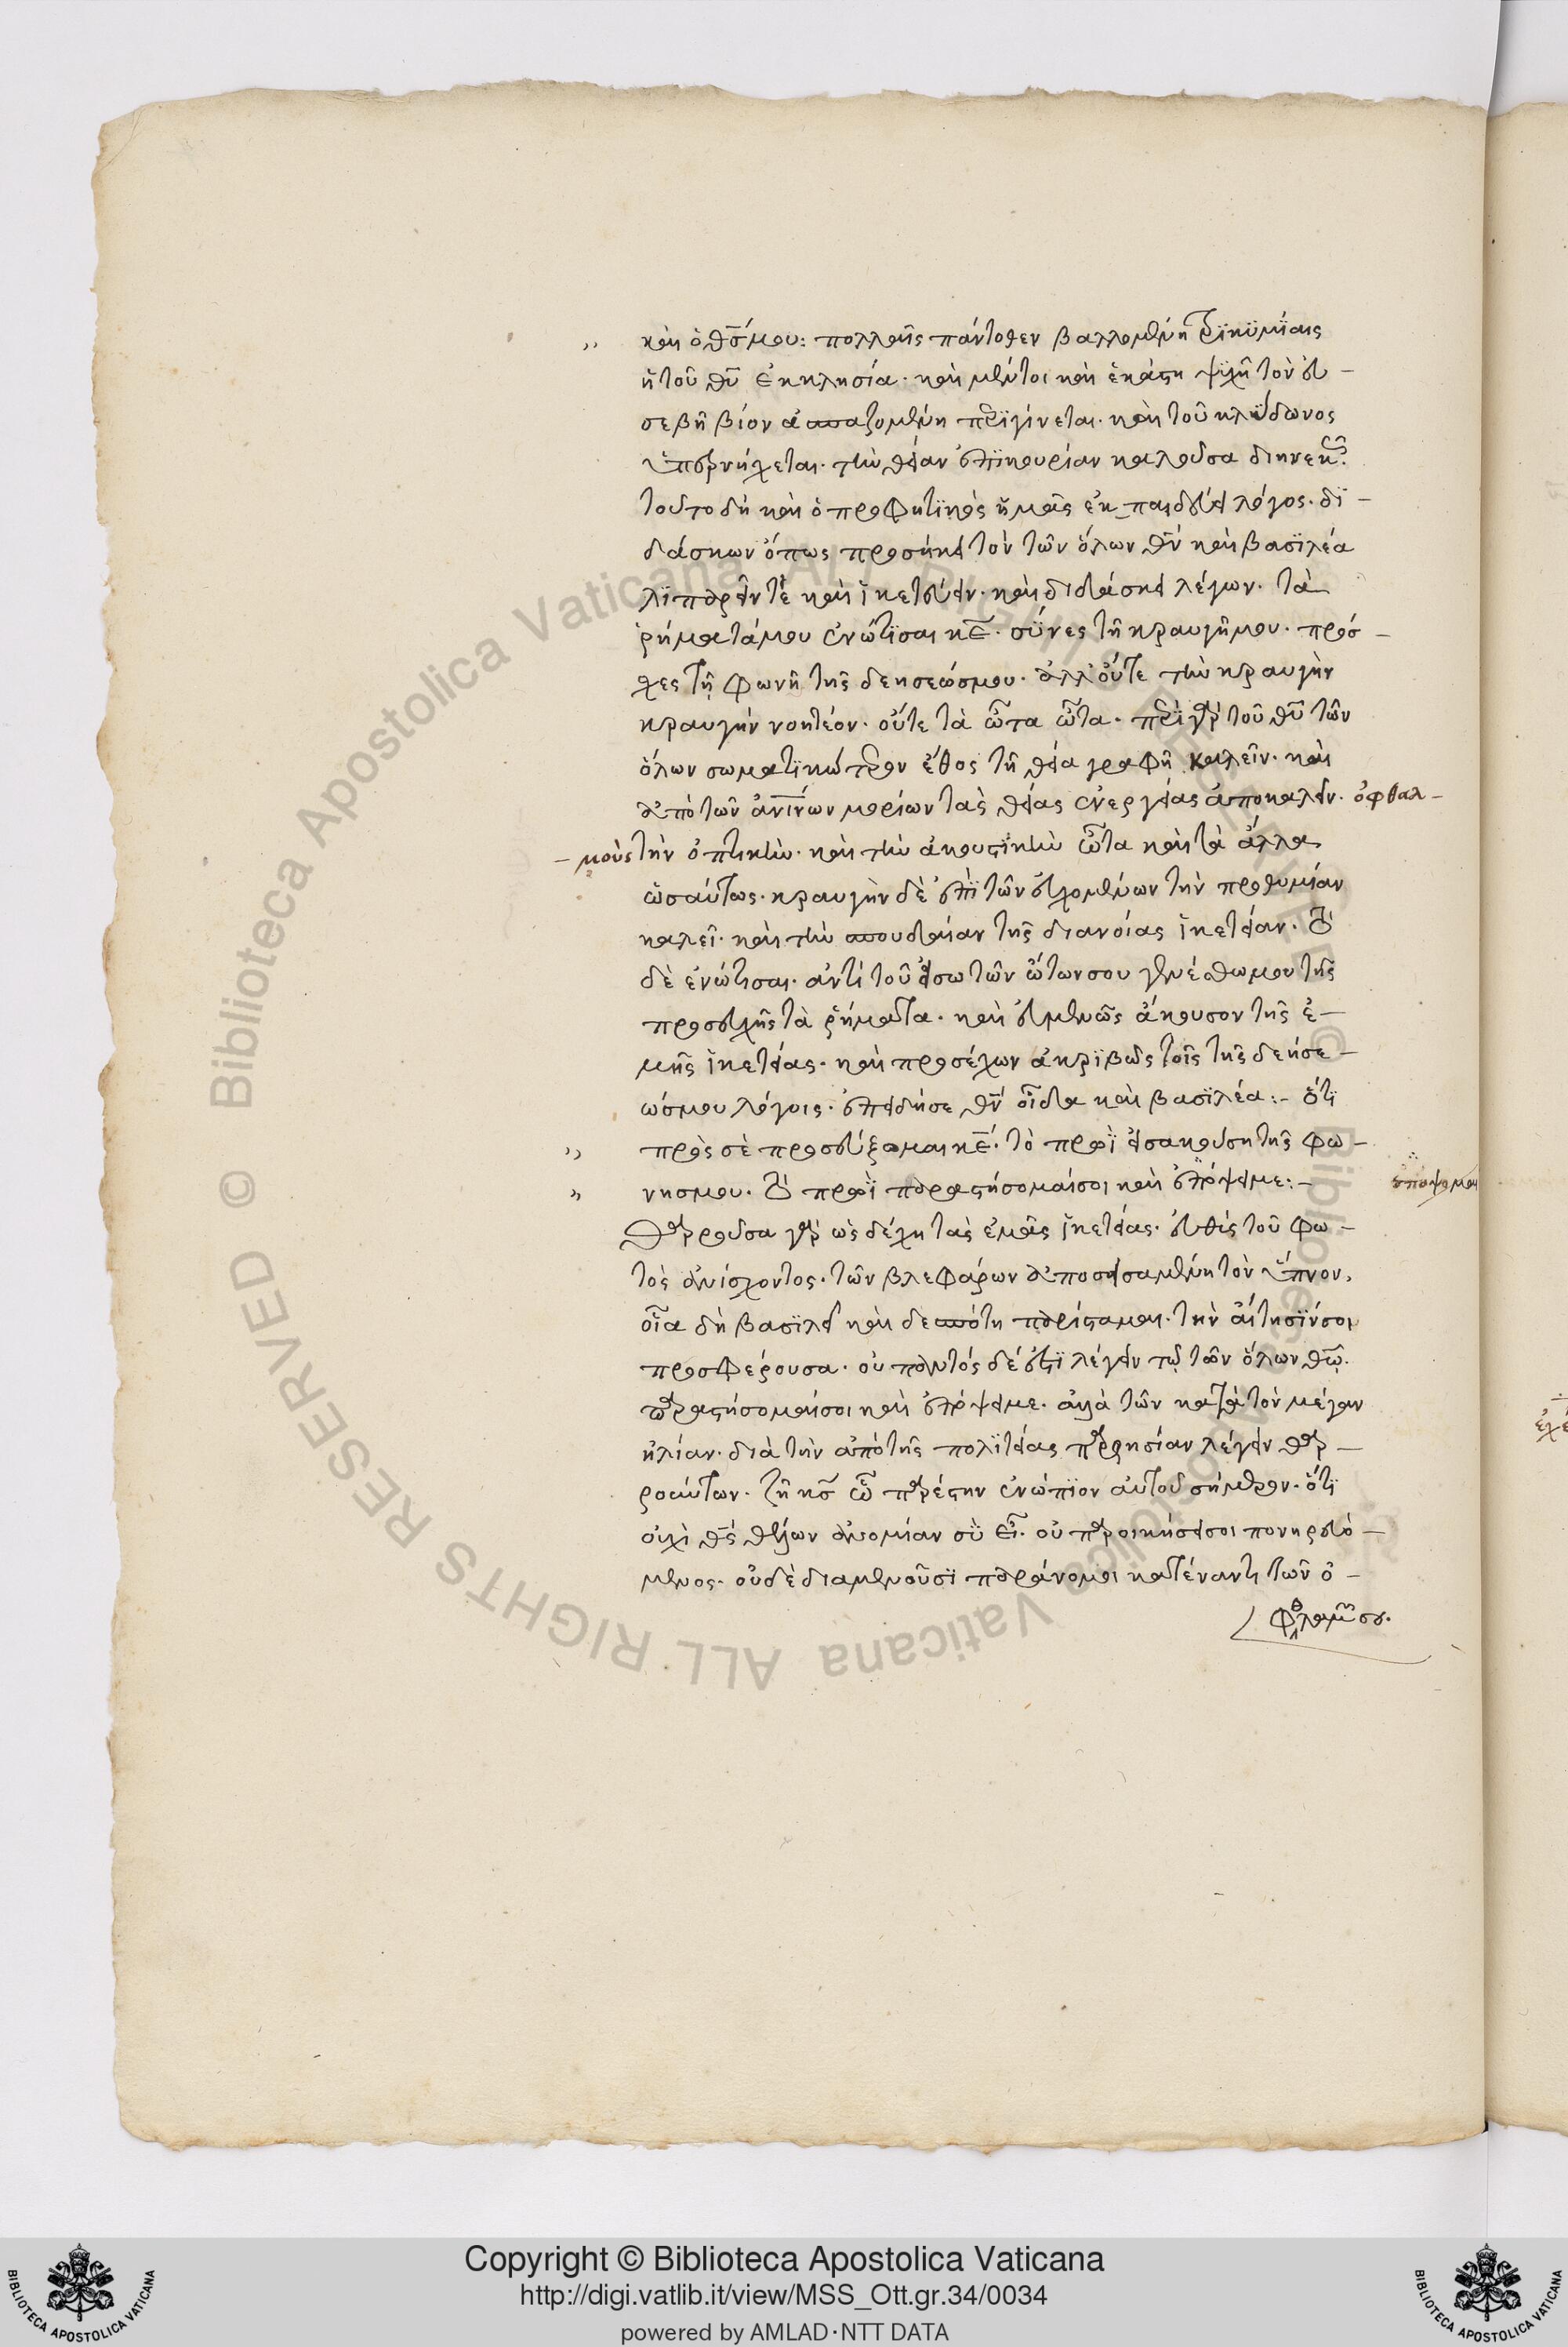 καὶ ὁ θς μου: πολλαῖς πάντοθεν βαλλομένη τρϊκϋμίαις
ἡ τοῦ θῦ ἐκκλησία. καὶ μέντοι καὶ ἑκάστη ψϋχὴ τὸν εὐ–
σεβῆ βίον ἀσπαζομένη περϊγίνεται. καὶ τοῦ κλύδωνος
ὑπερνήχεται. τὴν θείαν ἐπϊκουρίαν καλοῦσα διηνεκῶς.
τοῦτο δὴ καὶ ὁ προφητϊκὸς ἡμᾶς ἐκπαιδεύει λόγος. δϊ–
δάσκων ὅπως προσήκει τὸν τῶν ὅλων θν καὶ βασϊλέα
λϊπαρεῖν τὲ καὶ ἱκετεύειν. καὶ διδάσκει λέγων. τὰ
ῥήματά μου ἐνώτϊσαι κε. σύνες τῆ κραυγῆ μου. πρόσ–
χες τῇ φωνῆ τῆς δεησεώς μου. ἀλλ' οὔτε τὴν κραυγὴν
κραυγὴν νοητέον. οὔτε τὰ ὦτα ὦτα. περὶ γὰρ τοῦ θῦ τῶν
ὅλων σωματϊκώτερον ἔθος τῆ θεία γραφῆ καλεῖν. καὶ
ἀπὸ τῶν ἀνίνων μορίων τὰς θείας ἐνεργείας ἀποκαλεῖν. ὀφθαλ–
–μοὺς τὴν ὀπτικὴν. καὶ τὴν ἀκουστϊκὴν ὦτα καὶ τὰ ἄλλα
ὡσαύτως. κραυγὴν δὲ ἐπὶ τῶν εὐχομένων τὴν προθυμίαν
καλεῖ. καὶ τὴν σπουδαίαν τῆς διανοίας ἱκετείαν. τὸ
δὲ ἐνώτισαι. ἀντὶ τοῦ εἴσω τῶν ὤτων σου γενέσθω μου τῆς
προσευχῆς τὰ ῥήματα. καὶ εὐμενῶς ἄκουσον τῆς ἐ–
μῆς ἱκετείας. καὶ προσέχων ἀκρϊβῶς τοῖς τῆς δεήσε–
ώς μου λόγοις. ἐπειδή σε θν οἶδα καὶ βασϊλέα:– ὅτϊ
πρὸς σὲ προσεύξομαι κε. τὸ πρωῒ εἰσακούση τῆς φω–
νης μου. τὸ πρωῒ παραστήσομαί σοι καὶ ἐπόψει με:–
ἐπόψομαι
Θαρροῦσα γὰρ ὡς δέχη τὰς ἐμὰς ἱκετείας. εὐθὺς τοῦ φω–
τὸς ἀνίσχοντος. τῶν βλεφάρων ἀποσεισαμένη τὸν ὕπνον,
οἷα δὴ βασϊλεῖ καὶ δεσπότη παρίσταμαι. τὴν αἴτησίν σοι
προσφέρουσα. οὐ παντὸς δέ ἐστϊ λέγειν τῷ τῶν ὅλων θῷ.
παραστήσομαί σοι καὶ ἐπόψει με. ἀλλὰ τῶν κατὰ τὸν μέγαν
ἡλίαν. διὰ τὴν ἀπὸ τῆς πολϊτείας παρρησίαν λέγειν θαρ–
ρούντων. ζῆ κς ὧ παρέστην ἐνώπϊον αὐτοῦ σήμερον. ὅτϊ
οὐχὶ θς θέλων ἀνομίαν σὺ εἶ. οὐ παροικήσει σοι πονηρευό–
μενος. οὐδὲ διαμενοῦσϊ παράνομοι κατέναντι τῶν ὀ–
φθαλμῶν σου.
Copyright © Biblioteca Apostolica Vaticana
http://digi.vatlib.it/view/MSS_Ott.gr.34/0034
powered by AMLAD·NTT DATA